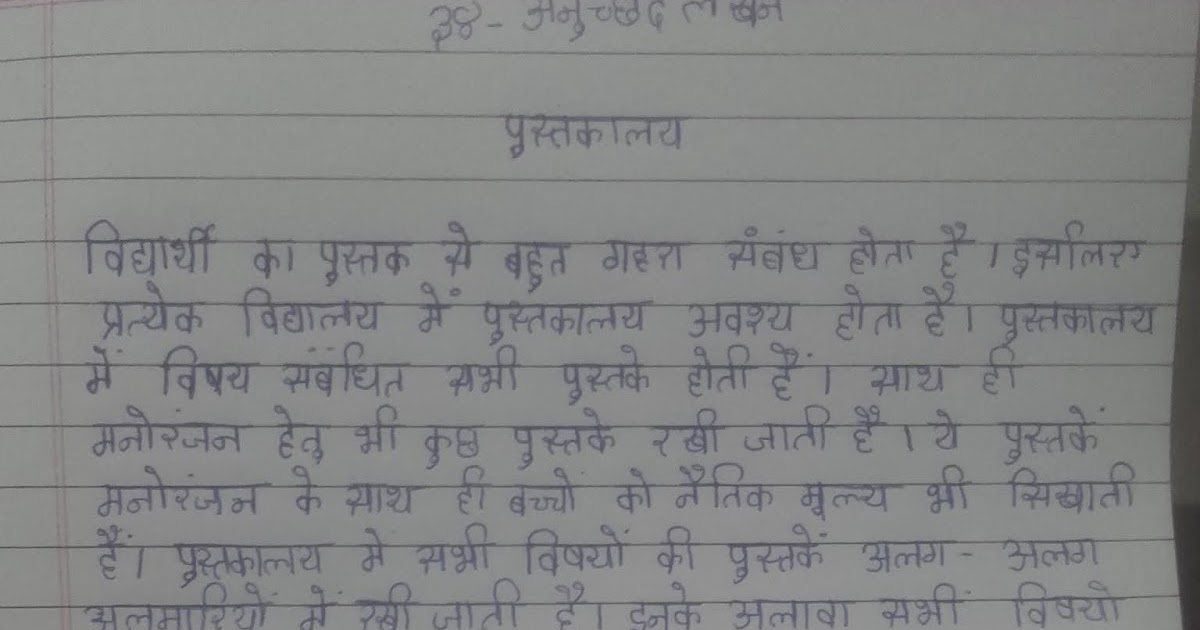 ३४- अनुच्छेद लेखन
पुस्तकालय
विद्यार्थी का पुस्तक से बहुत गहरा संबंध होता है । इसलिए
प्रत्येक विद्यालय में पुस्तकालय अवश्य होता है। पुस्तकालय
में विषय संबंधित सभी पुस्तके होती हैं। साथ ही
मनोरंजन हेतु भी कुछ पुस्तके रखी जाती हैं । ये पुस्तकें
मनोरंजन के साथ ही बच्चो को नैतिक मूल्य भी सिखाती
हैं। पुस्तकालय मे सभी विषयों की पुस्तकें अलग - अलग
अलमारियों में रखी जाती है। इनके अलावा सभी विषयो